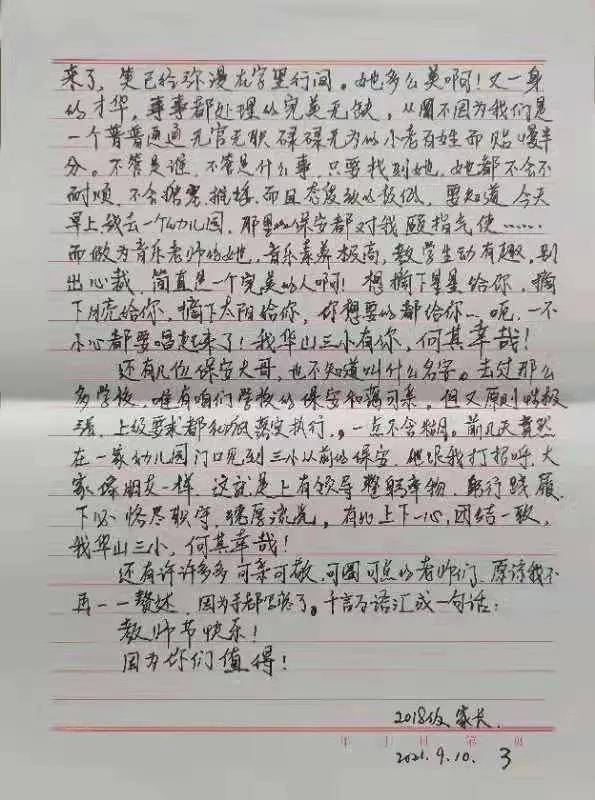 来了，笑已经弥漫在字里行间。她多么美啊！又一身
的才华，事事都处理的完美无缺，从不因为我们是
一个普普通通无官无职碌碌无为的小老百姓而贴半
分。不管是谁，不管是什么事，只要找到她，她都不会不
耐烦，不会搪塞、推搡，而且态度放的极低，要知道，今天
早上我去一个幼儿园，那里的保安都对我颐指气使……
而做为音乐老师的她，音乐素养极高，教学生动有趣，别
出心裁，简直是一个完美的人啊！想摘下星星给你，摘
下月亮给你，摘下太阳给你，你想要的都给你…呃，一不
小心都要唱起来了！我华山三小有你，何其幸哉！
还有几位保安大哥，也不知道叫什么名字。去过那么
多学校，唯有咱们学校的保安和蔼可亲。但又原则性极
强，上级要求都彻底落实执行，一点不含糊。前几天竟然
在一家幼儿园门口见到三小以前的保安，他跟我打招呼，大
家像朋友一样，这就是上有领导整躬率物，躬行践履，
下必恪尽职守，德厚流光。有的上下一心，团结一致，
我华山三小，何其幸哉！
还有许许多多可亲可敬，可圈可点的老师们，原谅我不
再一一赘述，因为手都写酸了。千言万语汇成一句话：
教师节快乐！
因为你们值得！
2018级家长.
年 月 日 第 页
2021.9.10. 3